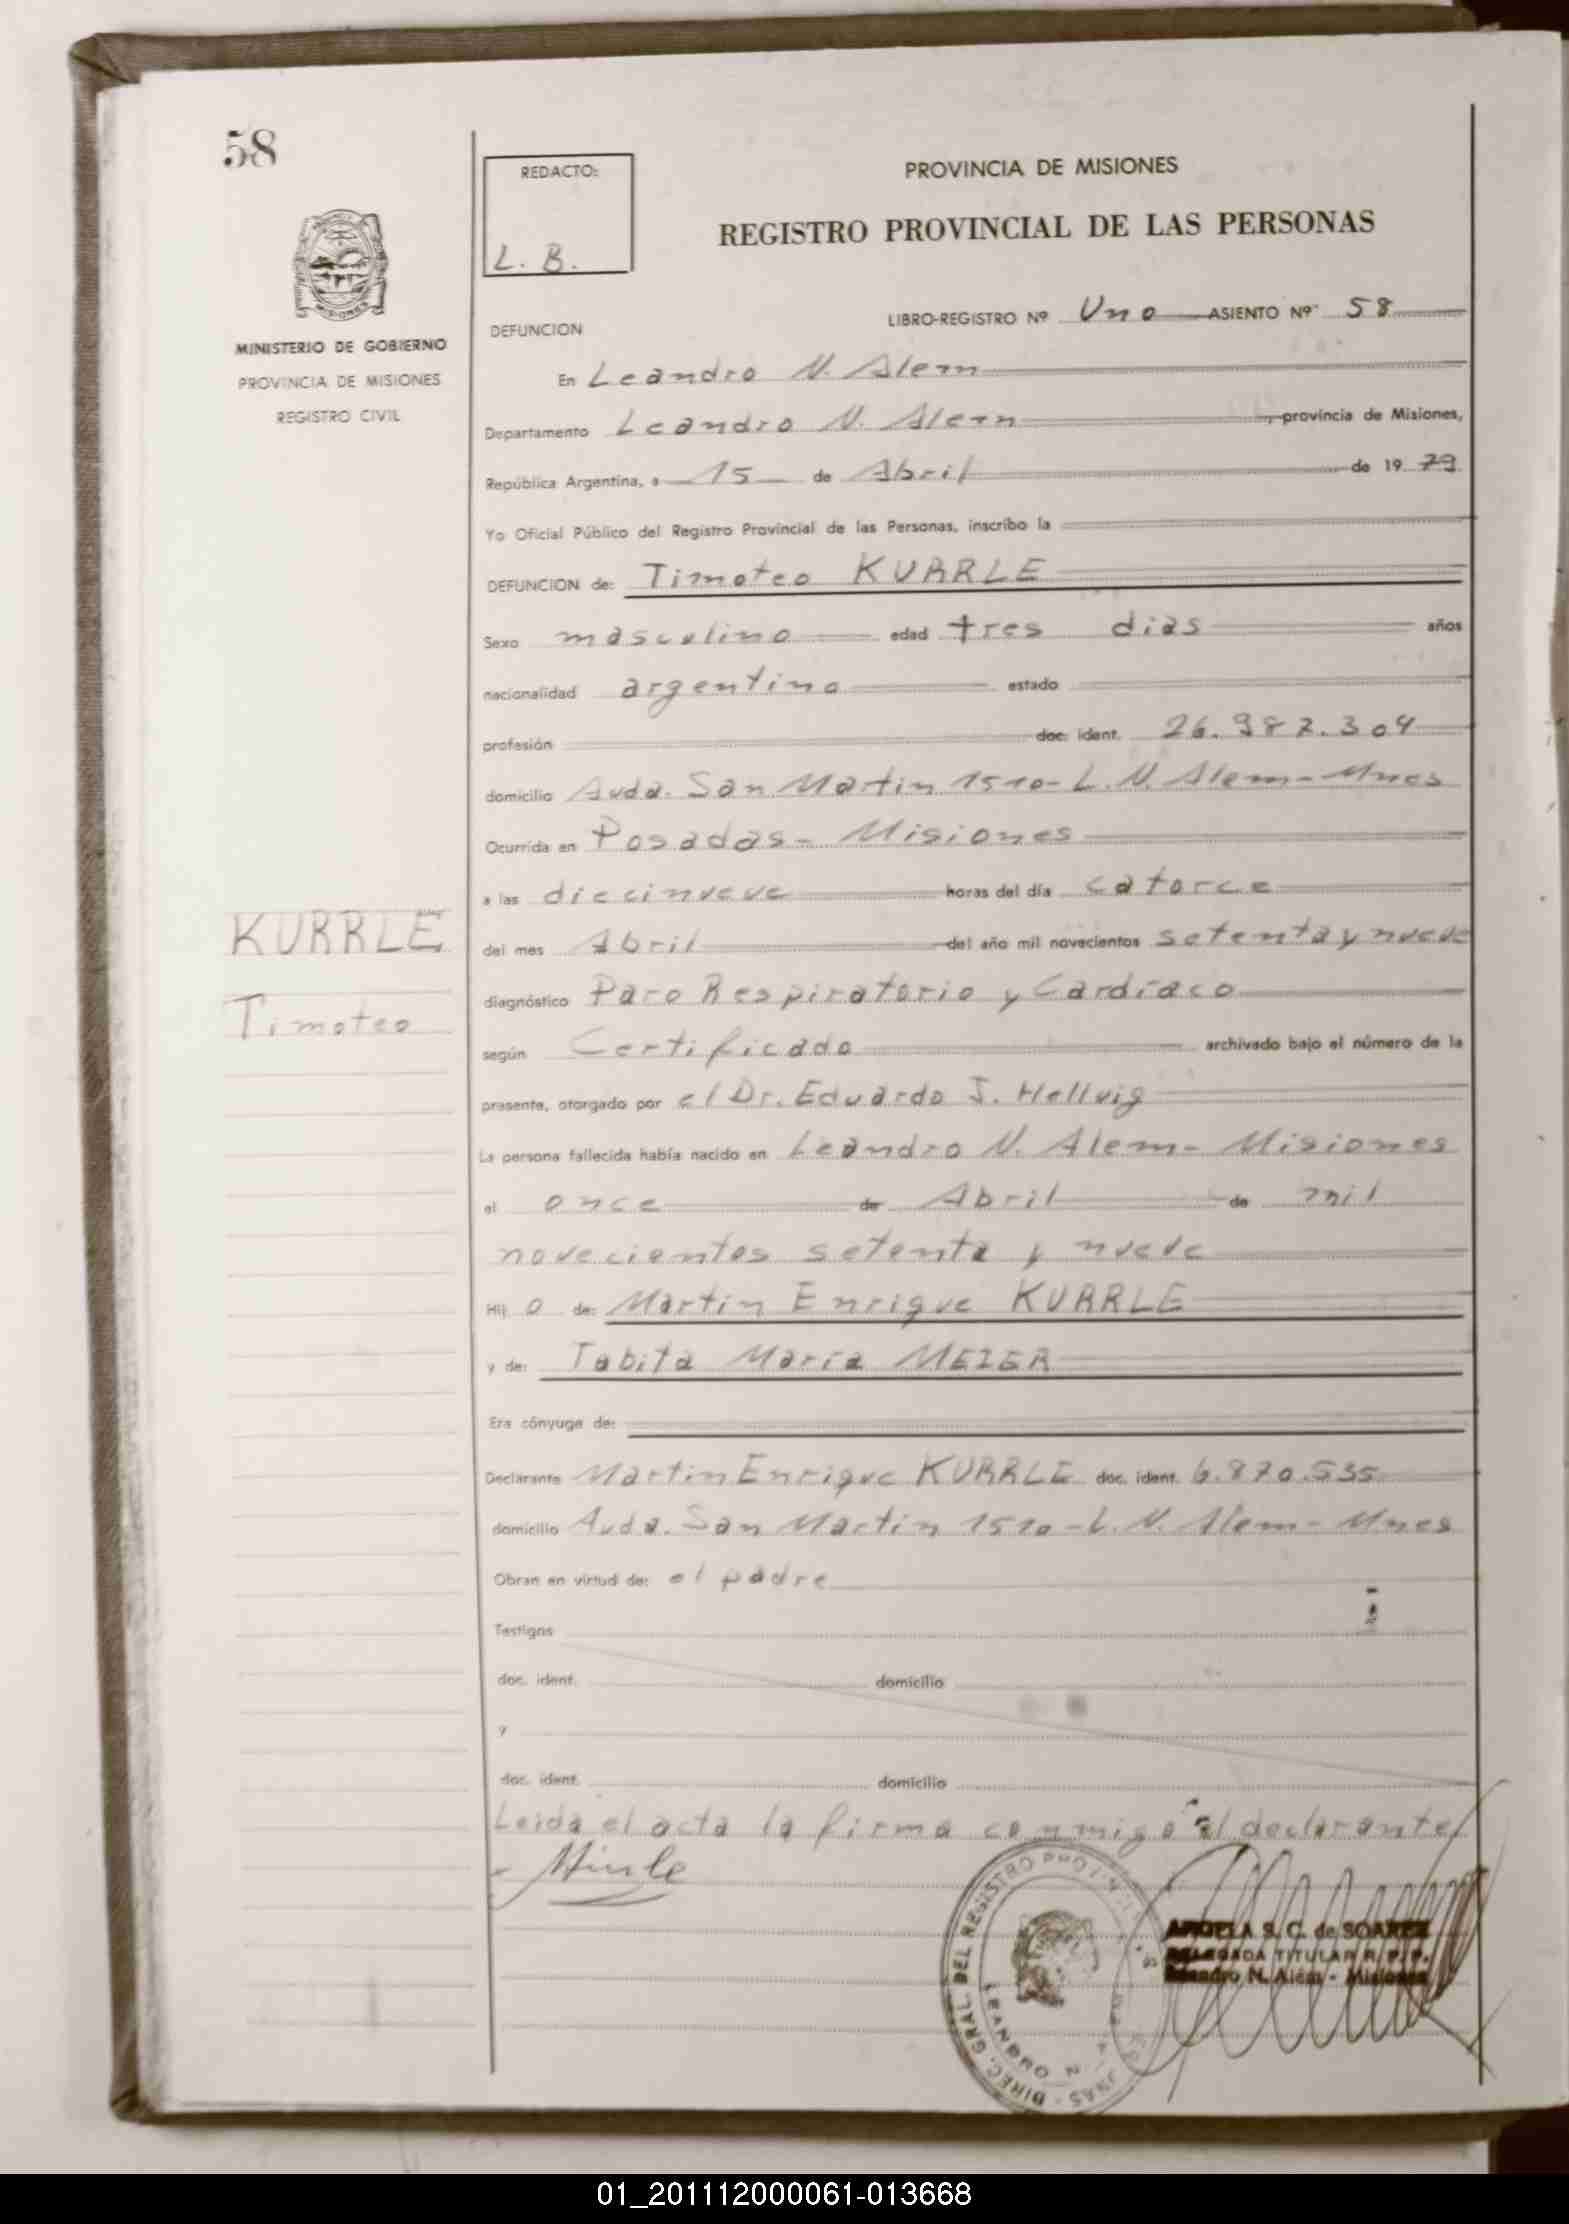 58
REDACTO:
L. B.
PROVINCIA DE MISIONES
REGISTRO PROVINCIAL DE LAS PERSONAS
MINISTERIO DE GOBIERNO
PROVINCIA DE MISIONES
REGISTRO CIVIL
DEFUNCION
LIBRO-REGISTRO Nº Uno ASIENTO Nº 58
En Leandro N. Alem
Departamento Leandro N. Alem, provincia de Misiones,
República Argentina, a 15 de Abril de 19 79
Yo Oficial Público del Registro Provincial de las Personas, inscribo la
DEFUNCION de: Timoteo KURRLE
Sexo masculino edad tres dias años
nacionalidad argentina estado
profesión doc. ident. 26.987.304
domicilio Avda. San Martin 1510-L.N. Alem-Mnes
Ocurrida en Posadas- Misiones
a las diecinueve horas del día catorce
KURRLE
Timoteo
del mes Abril del año mil novecientos setenta y nueve
diagnóstico Paro Respiratorio y Cardíaco
según Certificado archivado bajo el número de la
presente, otorgado por el Dr. Eduardo J. Hellvig
La persona fallecida había nacido en Leandro N. Alem- Misiones
el once de Abril de mil
novecientos setenta y nueve
Hij o de: Martin Enrique KURRLE
y de: Tabita María MEZER
Era cónyuge de:
Declarante Martin Enrique KURRLE doc. ident. 6.870.535
domicilio Avda. San Martin 1510-L.N. Alem-Mnes
Obran en virtud de: el padre
Testigos
doc. ident. domicilio
y
doc. ident. domicilio
Leida el acta la firma conmigo el declarante
DIREC. GRAL. DEL REGISTRO
LEANDRO N.
S. C. de SOAREZ
DELEGADA TITULAR R. P. P.
Leandro N. Além - Misiones
01_201112000061-013668